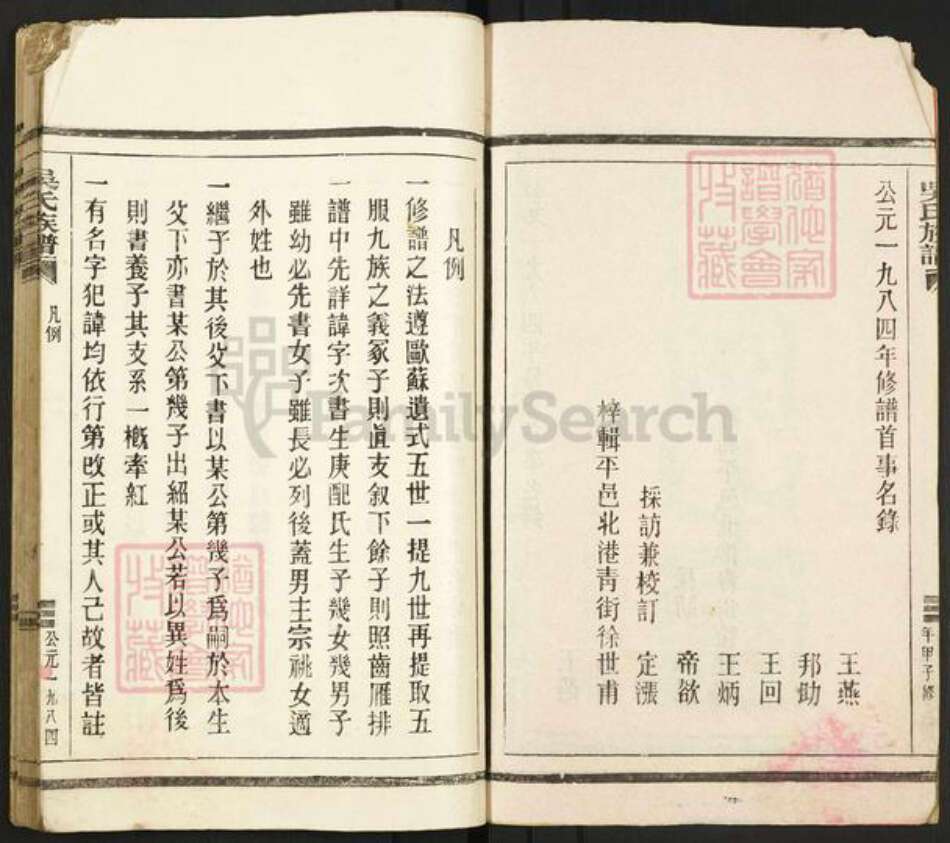 吳氏族譜
公元一九八四年修譜首事名錄
王燕
邦勛
王回
王炳
帝欲
採訪兼校訂 定漲
梓輯平邑北港青街徐世甫
年甲子修
凡例
一修譜之法遵歐蘇遺式五世一提九世再提取五
服九族之義冢子則眞支叙下餘子則照齒雁排
一譜中先詳諱字次書生庚配氏生子幾女幾男子
雖幼必先書女子雖長必列後蓋男主宗祧女適
外姓也
一繼子於其後父下書以某公第幾子爲嗣於本生
父下亦書某公第幾子出紹某公若以異姓爲後
則書養子其支系一槪牽紅
一有名字犯諱均依行第改正或其人己故者皆註
吳氏族譜
凡例
公元一九八四
FamilySearch